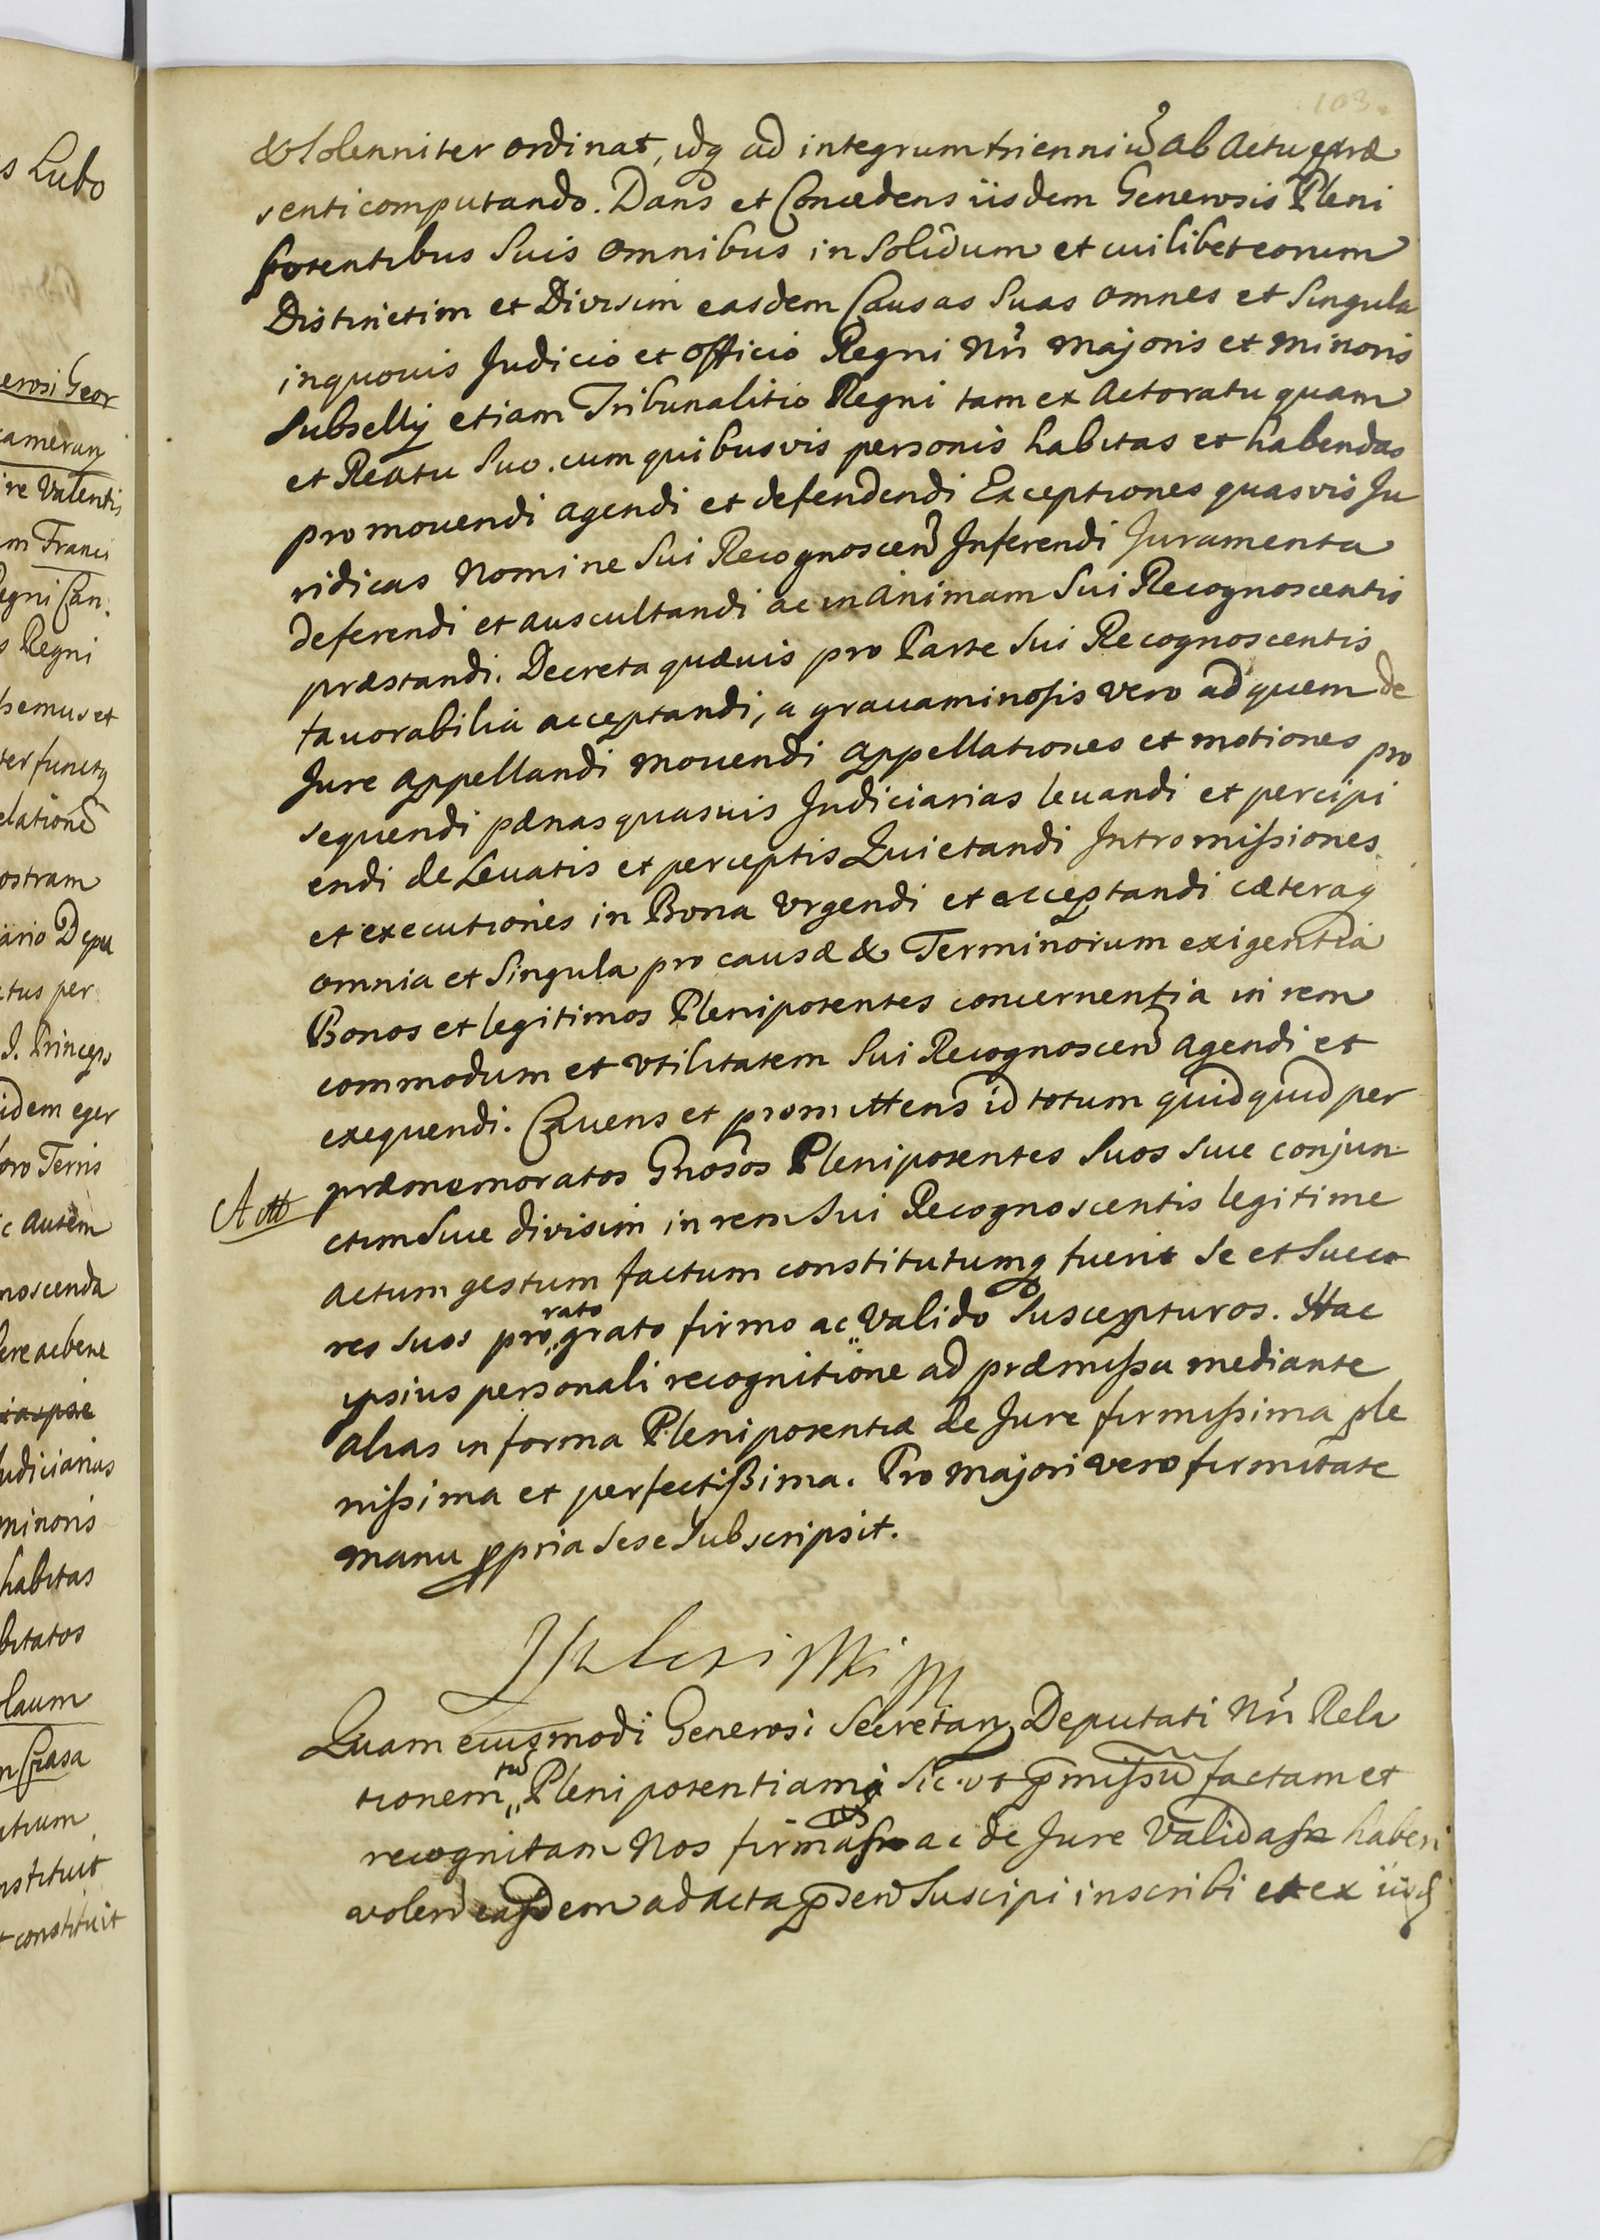 103.
& Solenniter ordinat, idq ad integrum trienniũ ab Actu præ
senti computando. Dans et Concedens iisdem Generosis Pleni
potentibus Suis omnibus in Solidum et cuilibet eorum
Distinctim et Divisim easdem Causas Suas omnes et Singula
in quovis Judicio et officio Regni Nri Majoris et Minoris
Subsellij etiam Tribunalitio Regni tam ex Actoratu quam
et Reatu Suo. cum quibusvis personis habitas et habendas
promouendi agendi et defendendi Exceptiones quasvis Ju
ridicas Nomine Sui Recognoscen Inferendi Juramenta
deferendi et auscultandi ac in animam Sui Recognoscentis
præstandi. Decreta quævis pro Parte Sui Recognoscentis
favorabilia acceptandi, a grauaminosis vero ad quem de
Jure appellandi mouendi appellationes et motiones pro
sequendi pænas quasuis Judiciarias leuandi et percipi
endi de Leuatis et perceptis Quietandi Intromissiones
et executiones in Bona Urgendi et acceptandi cæteraq
omnia et Singula pro causæ & Terminorum exigentia
Bonos et legitimos Plenipotentes concernentia in rem
commodum et Utilitatem Sui Recognoscen agendi et
exequendi. Cavens et promittens id totum quidquid per
præmemoratos Gnosos Plenipotentes Suos Siue conjun
ctim Siue divisim in rem Sui Recognoscentis legitime
Actum gestum factum constitutumq fuerit Se et Succo
res suos pro rato grato firmo ac Valido Suscepturos. Hac
ipsius personali recognitione ad præmissa mediante
alias in forma Plenipotentiæ de Jure firmissima ple
nissima et perfectissima. Pro Majori vero firmitate
manu ppria Sese Subscripsit.
Quam eiusmodi Generosi Secretarij Deputati Nri Rela
tionem tũ Plenipotentiam Sic. ut pmissũ factam et
recognitam Nos firmas ac de Jure Validas haberi
volen easdem ad Acta psen Suscipi inscribi et ex iisd